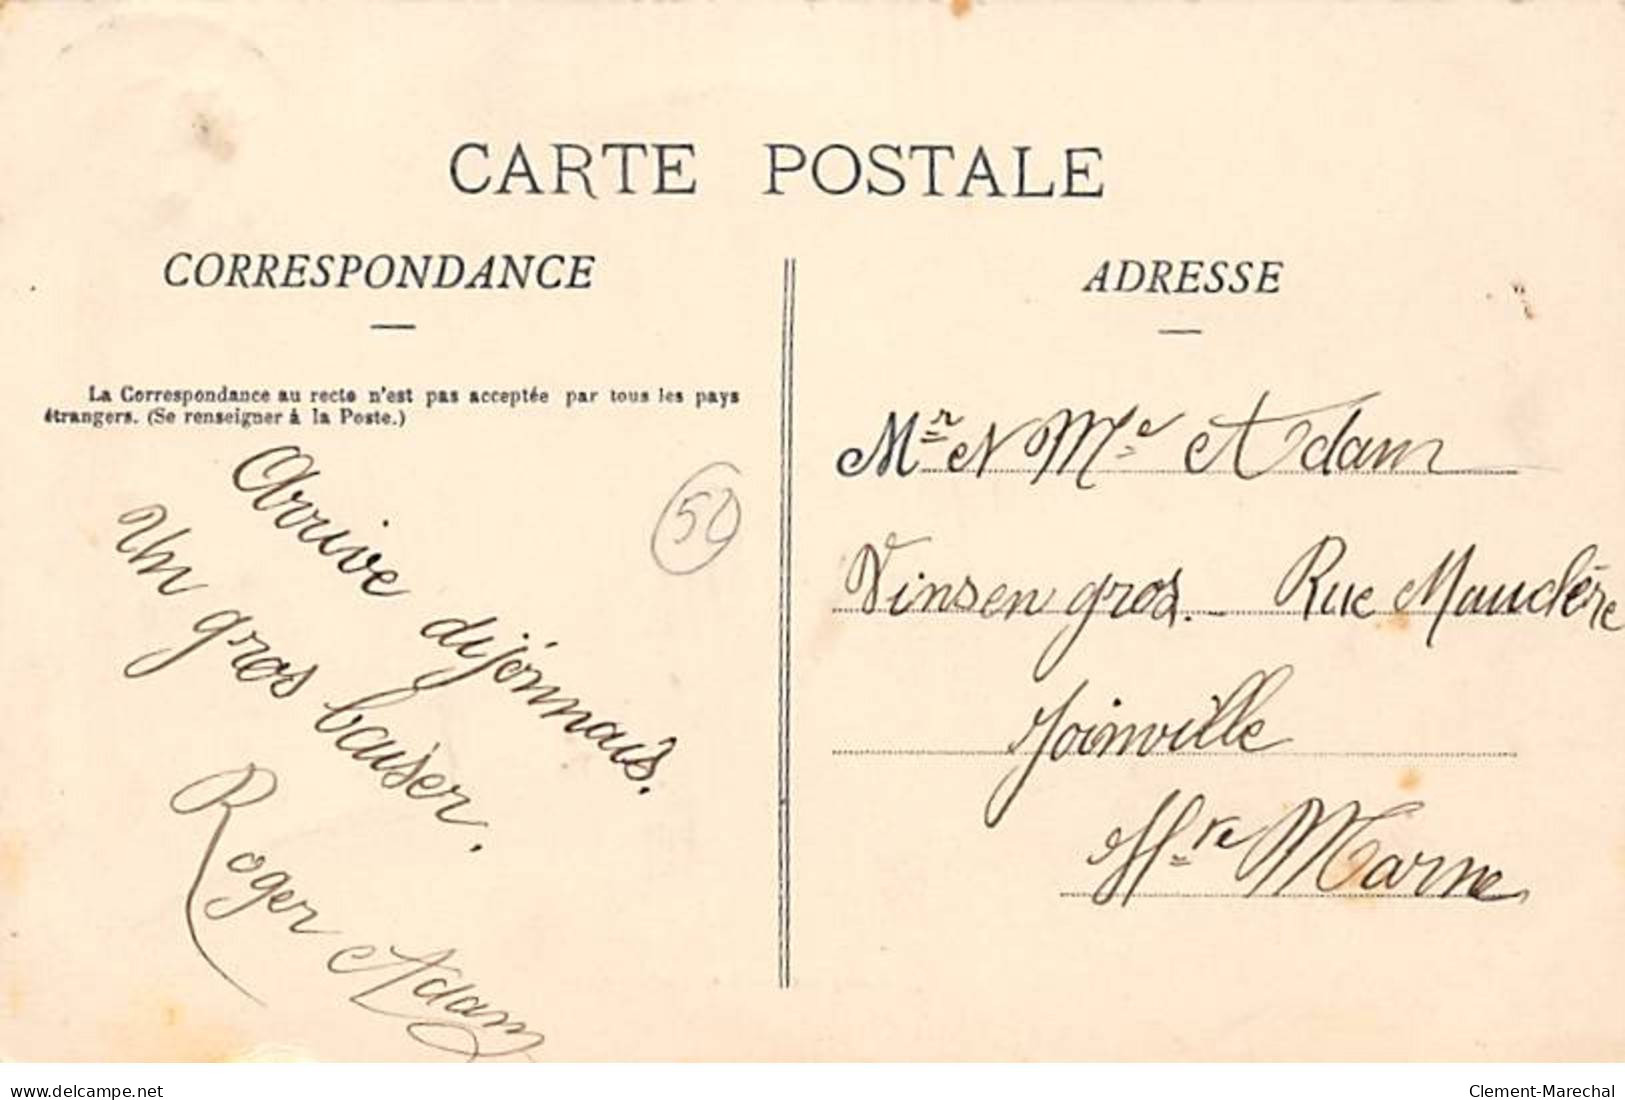 CARTE POSTALE
CORRESPONDANCE
La Correspondance au recto n'est pas acceptée par tous les pays
étrangers. (Se renseigner à la Poste.)
Arrive dijonnais.
Un gros baiser.
Roger Adam
50
ADRESSE
Mr et Me Adam
Vins en gros. - Rue Mauclère
Joinville
Hte Marne
www.delcampe.net
Clement-Marechal